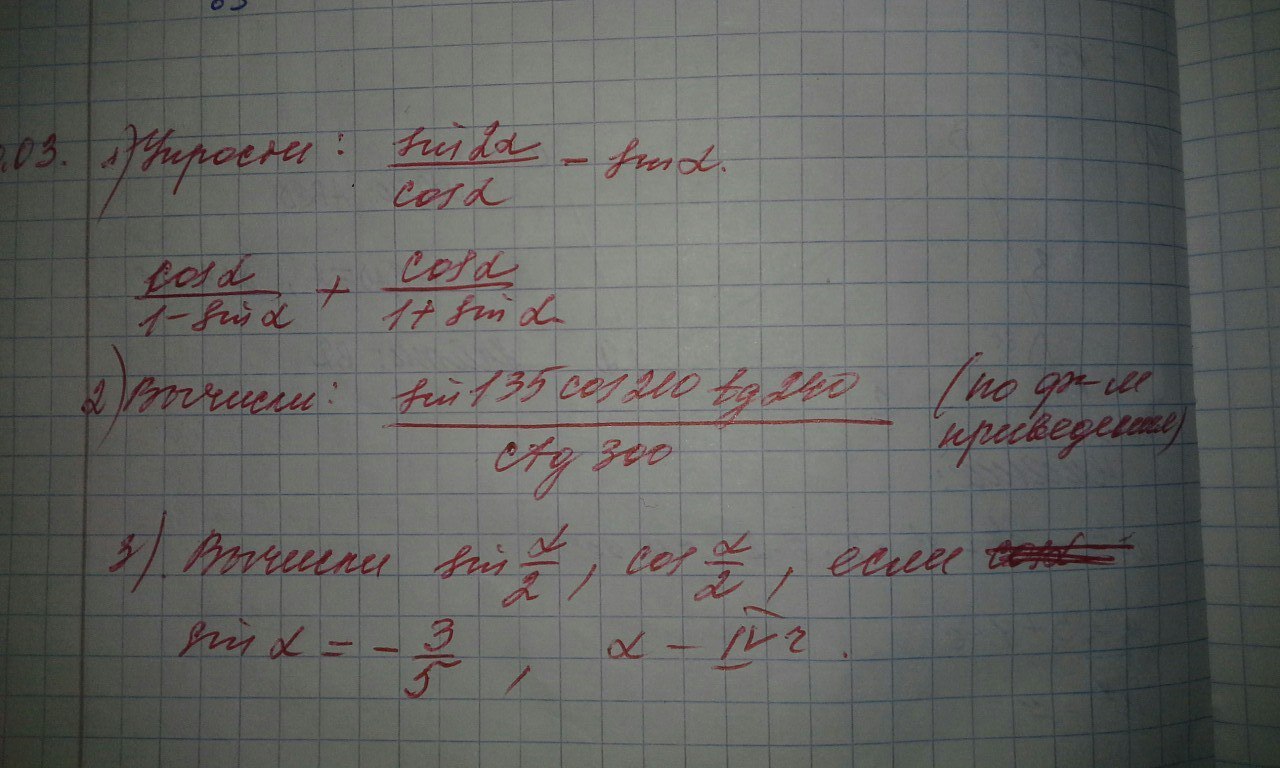 .03. 1) Упрости: sin2α/cosα - sinα.
cosα/1-sinα + cosα/1+sinα
2) Вычисли: sin135 cos210 tg240/ctg 300 (по ф-м приведения)
3). Вычисли sin α/2, cos α/2, если
sinα = - 3/5, α - IV ч.